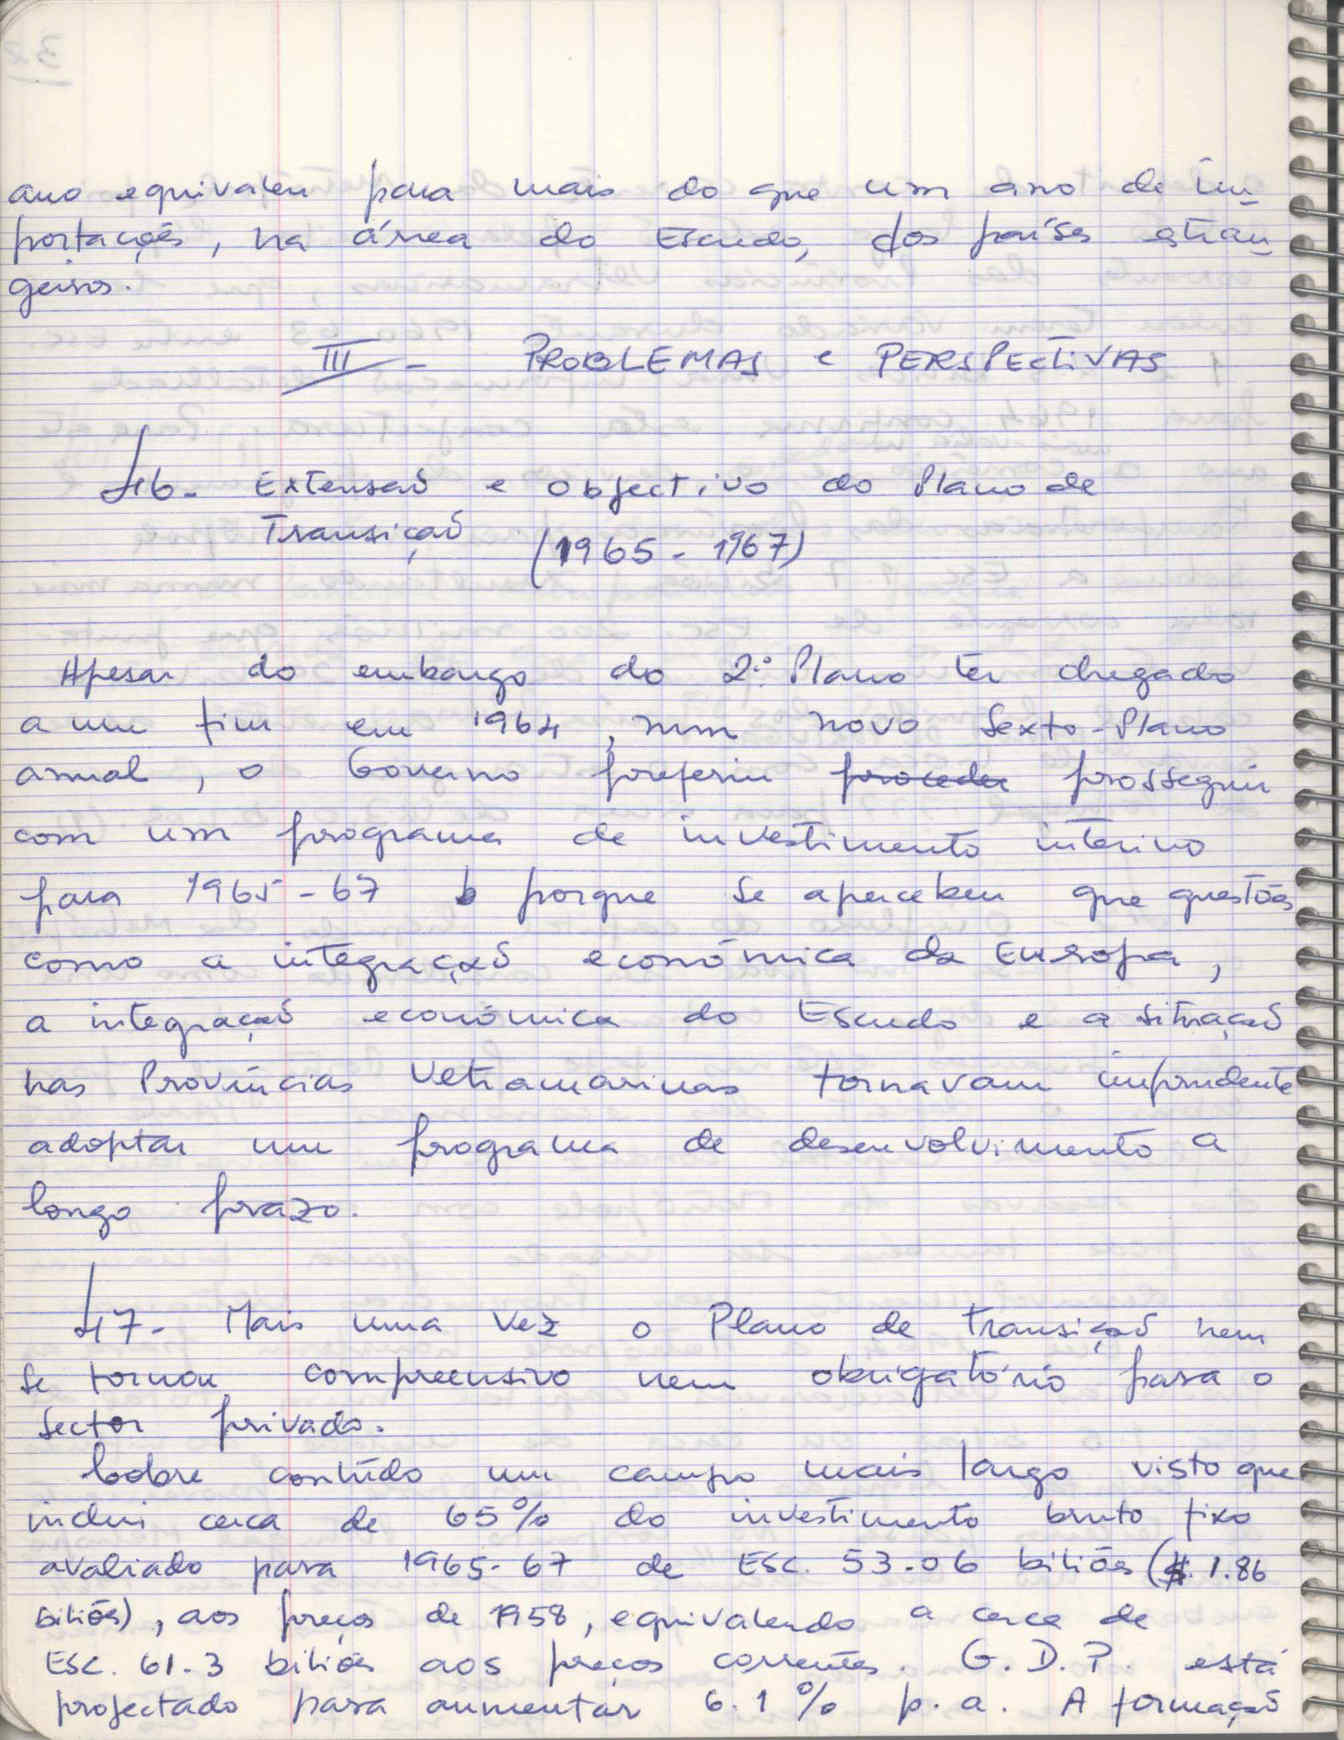 ano equivaleu para mais do que um ano de im
portações, na área do Escudo, dos países estran
geiros.
III - PROBLEMAS e PERSPECTIVAS
46. Extensaõ e objectivo do Plano de
Transiçaõ (1965 - 1967)
Apesar do embargo do 2º Plano ter chegado
a um fim em 1964, num novo Sexto-Plano
anual, o Governo preferiu proceder prosseguir
com um programa de investimento interino
para 1965-67 porque se apercebeu que questões
como a integraçaõ económica da Europa,
a integraçaõ económica do Escudo e a situaçaõ
nas Províncias Vetramarinas tornavam imprudente
adoptar um programa de desenvolvimento a
longo prazo.
47- Mais uma vez o Plano de Transiçaõ nem
se tornou compreensivo nem obrigatório para o
sector privado.
Cobre contúdo um campo mais largo visto que
inclui cerca de 65% do investimento bruto fixo
avaliado para 1965-67 de ESC. 53.06 biliões ($. 1.86
biliões), aos preços de 1958, equivalendo a cerca de
ESC. 61.3 biliões aos preços correntes. G.D.P. está
projectado para aumentar 6.1% p.a. A formaçaõ